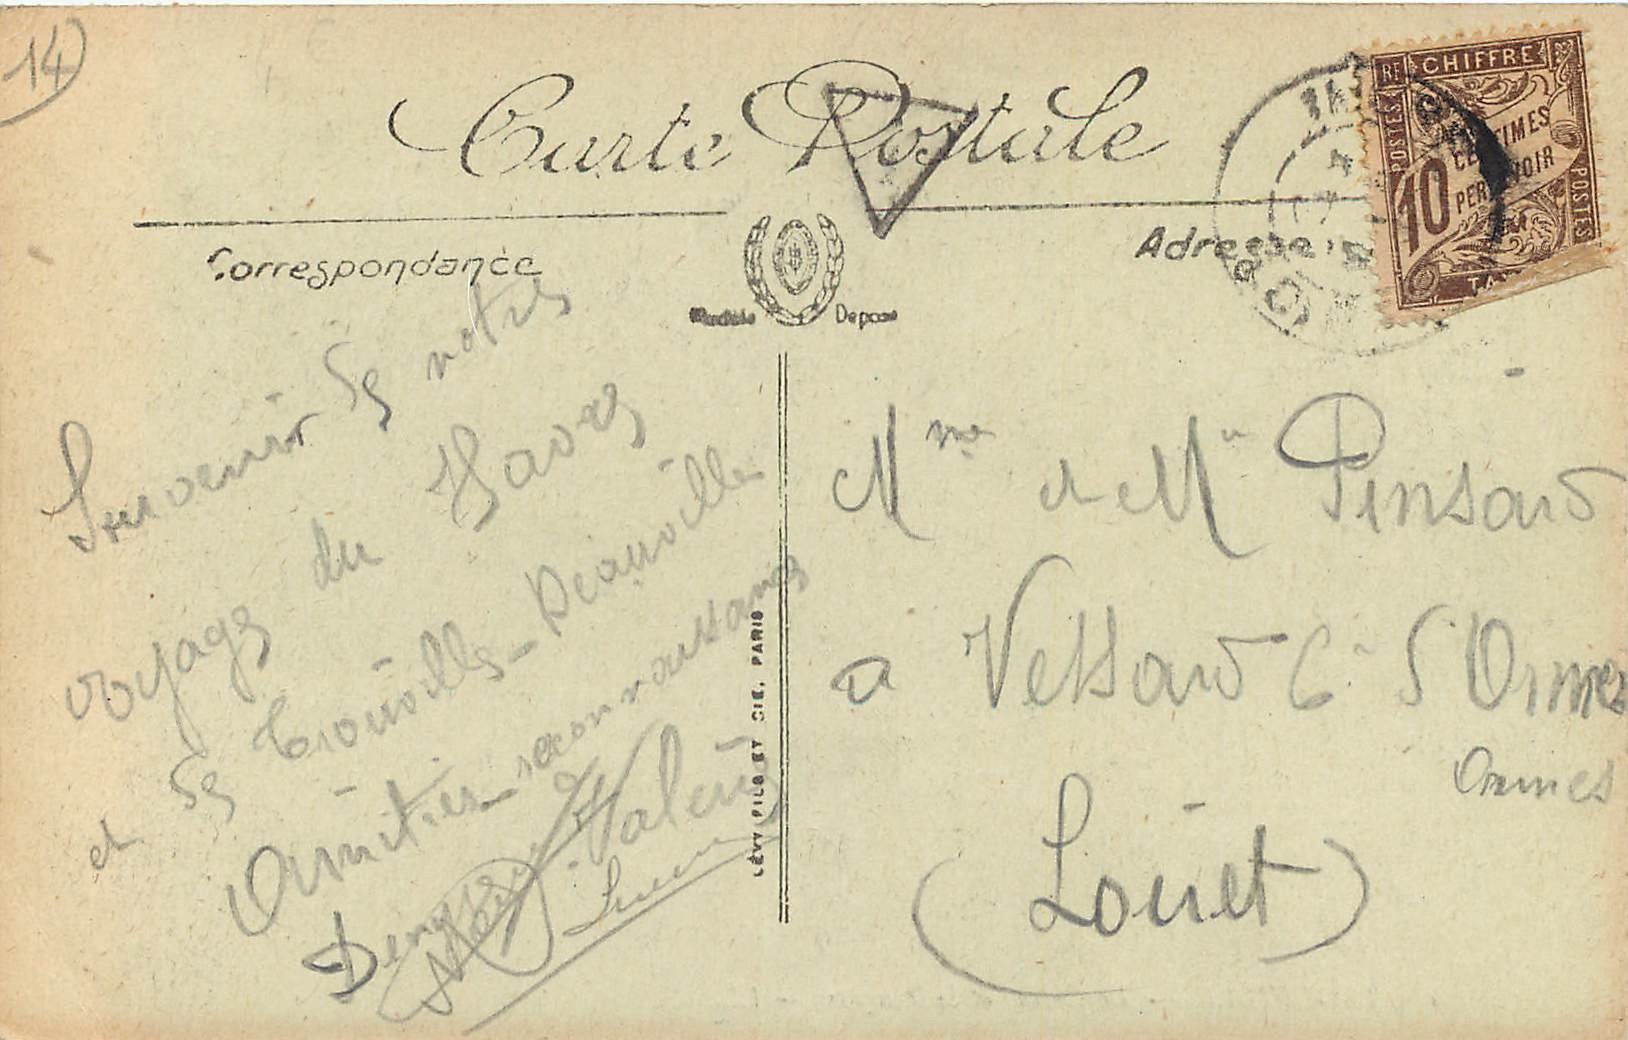 14
Carte Postale
Correspondance
Adresse
Modèle Déposé
RF CHIFFRE
POSTES
10 CENTIMES
PERCEVOIR
POSTES
Souvenir de notre
voyage du Havre
et de Trouville - Deauville
Amitiés - reconnaissance
Denyse
Valerie
LÉVY FILS ET CIE. PARIS
Mme et Mr Pinsard
a
Ormes
Ormes
(Loiret)